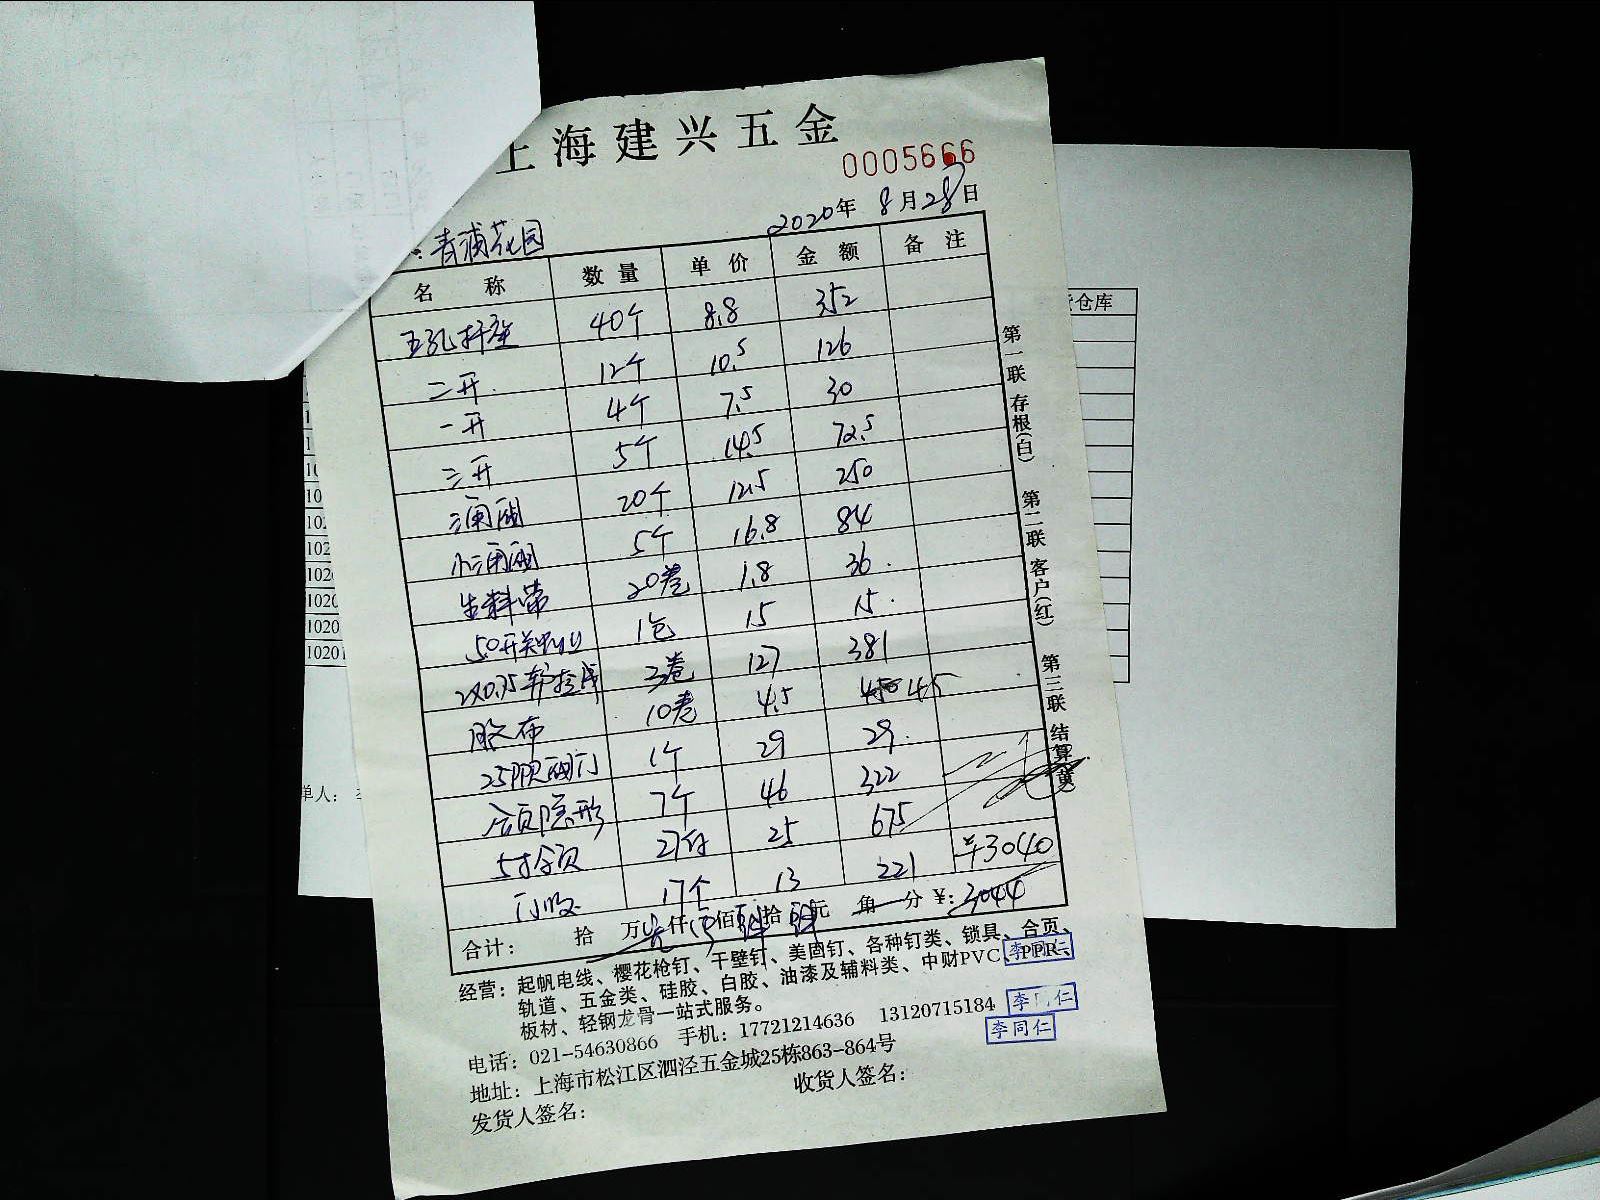 上海建兴五金
0005666
2020年 8月28日
:青浦花园
名 称 数量 单价 金额 备注
五孔插座 40个 8.8 352
二开. 12个 10.5 126
一开 4个 7.5 30
三开 5个 14.5 72.5
三角阀 20个 12.5 250
小三角阀 5个 16.8 84
生料带 20卷 1.8 36.
50开关 1包 15 15.
2X0.75护套线 3卷 127 381
胶布 10卷 4.5 45
25 阀门 1个 29 29.
合页隐形 7个 46 322
5寸合页 27付 25 675
门吸 17个 13 221 ¥3040
合计: 拾 万 仟 佰 拾 元 角 分 ¥: 3044
第一联 存根(白) 第二联 客户(红) 第三联 结算(黄)
经营: 起帆电线、樱花枪钉、干壁钉、美固钉、各种钉类、锁具、合页、
轨道、五金类、硅胶、白胶、油漆及辅料类、中财PVC、PPR、
板材、轻钢龙骨一站式服务。
李同仁
李同仁
李同仁
电话: 021-54630866 手机: 17721214636 13120715184
地址: 上海市松江区泗泾五金城25栋863-864号
发货人签名: 收货人签名:
仓库
102
102
1020
1020
1020
10201
单人: